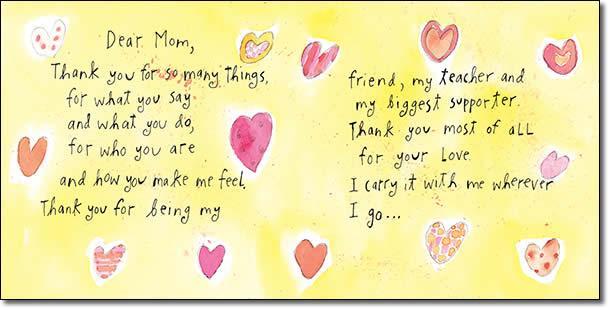 Dear Mom,
Thank you for so many things,
for what you say
and what you do,
for who you are
and how you make me feel.
Thank you for being my
friend, my teacher and
my biggest supporter.
Thank you most of all
for your love.
I carry it with me wherever
I go...